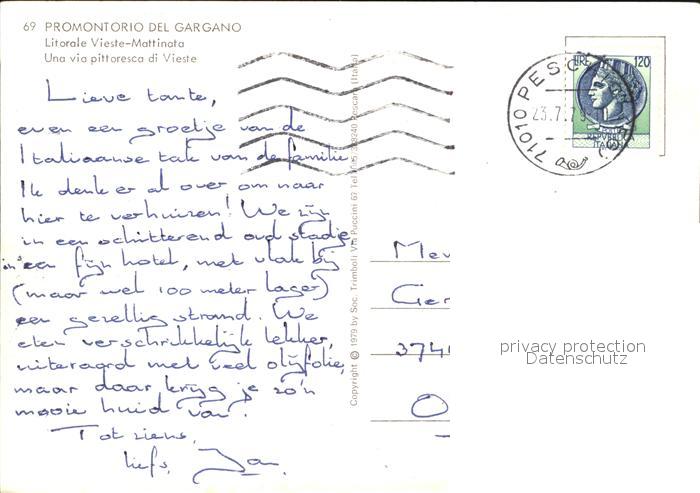 69 PROMONTORIO DEL GARGANO
Litorale Vieste-Mattinata
Una via pittoresca di Vieste
Lieve tante,
even een groetje van de
Italiaanse tak van de familie
Ik denk er al over om naar
hier te verhuizen! We zijn
in een schitterend oud stadje,
in een fijn hotel, met vlak bij
(maar wel 100 meter lager)
een gezellig strand. We
eten verschrikkelijk lekker,
uiteraard met veel olijfolie,
maar daar krijg je zo'n
mooie huid van!
Tot ziens,
liefs, Jan.
Copyright © 1979 by Soc. Trimboli Via Puccini 67 Pescara (Italia)
LIRE 120
REPVBBLICA
ITALIANA
71010 PESC
23.7.79
Mev
Ger
3741
O
privacy protection
Datenschutz